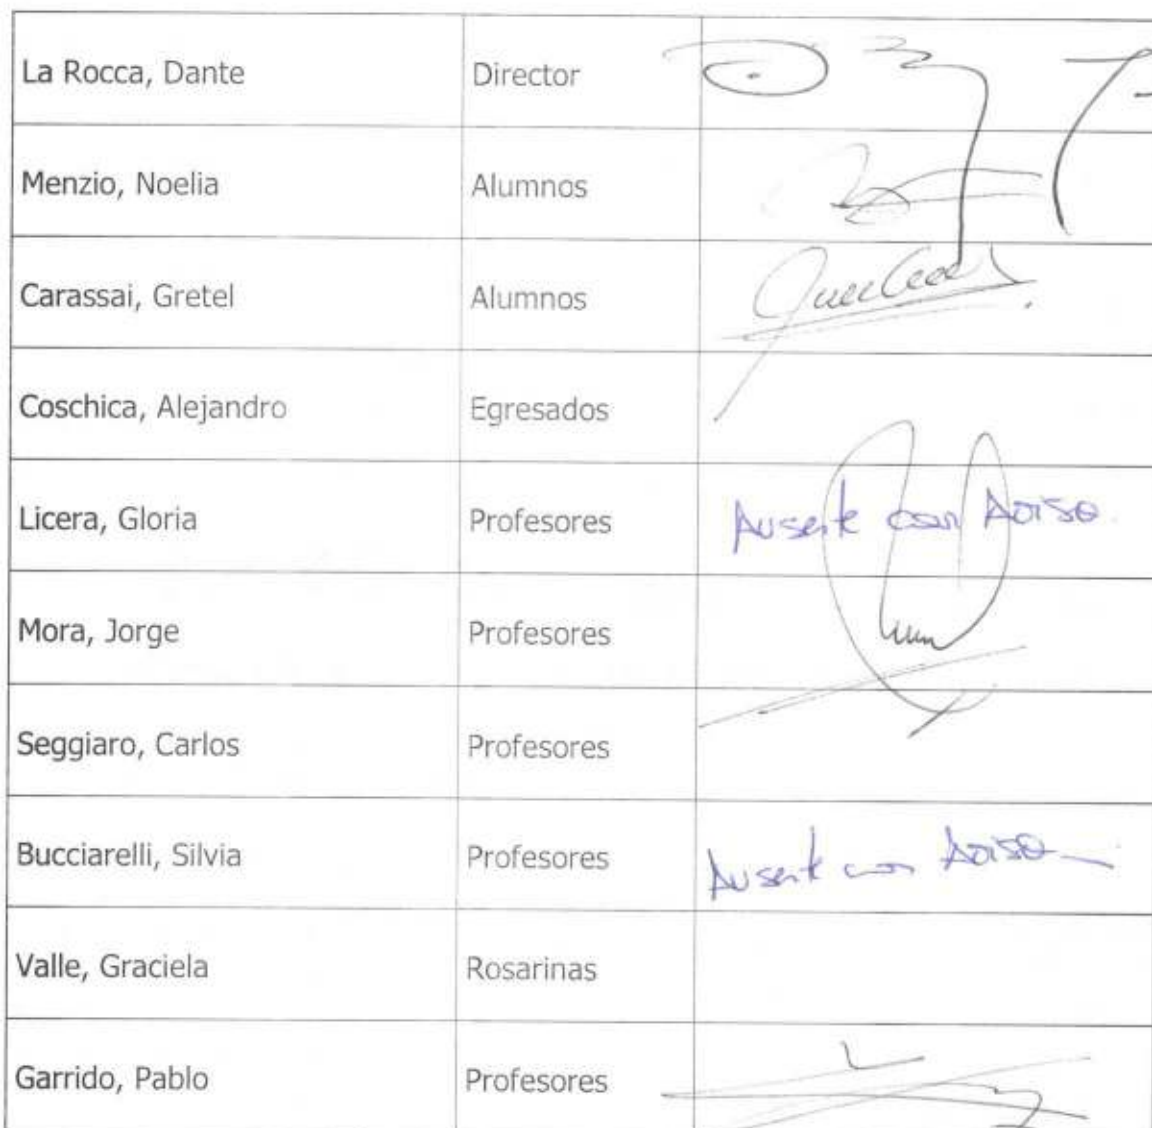 La Rocca, Dante Director
Menzio, Noelia Alumnos
Carassai, Gretel Alumnos
Coschica, Alejandro Egresados
Licera, Gloria Profesores Ausente con Aviso
Mora, Jorge Profesores
Seggiaro, Carlos Profesores
Bucciarelli, Silvia Profesores Ausente con Aviso
Valle, Graciela Rosarinas
Garrido, Pablo Profesores